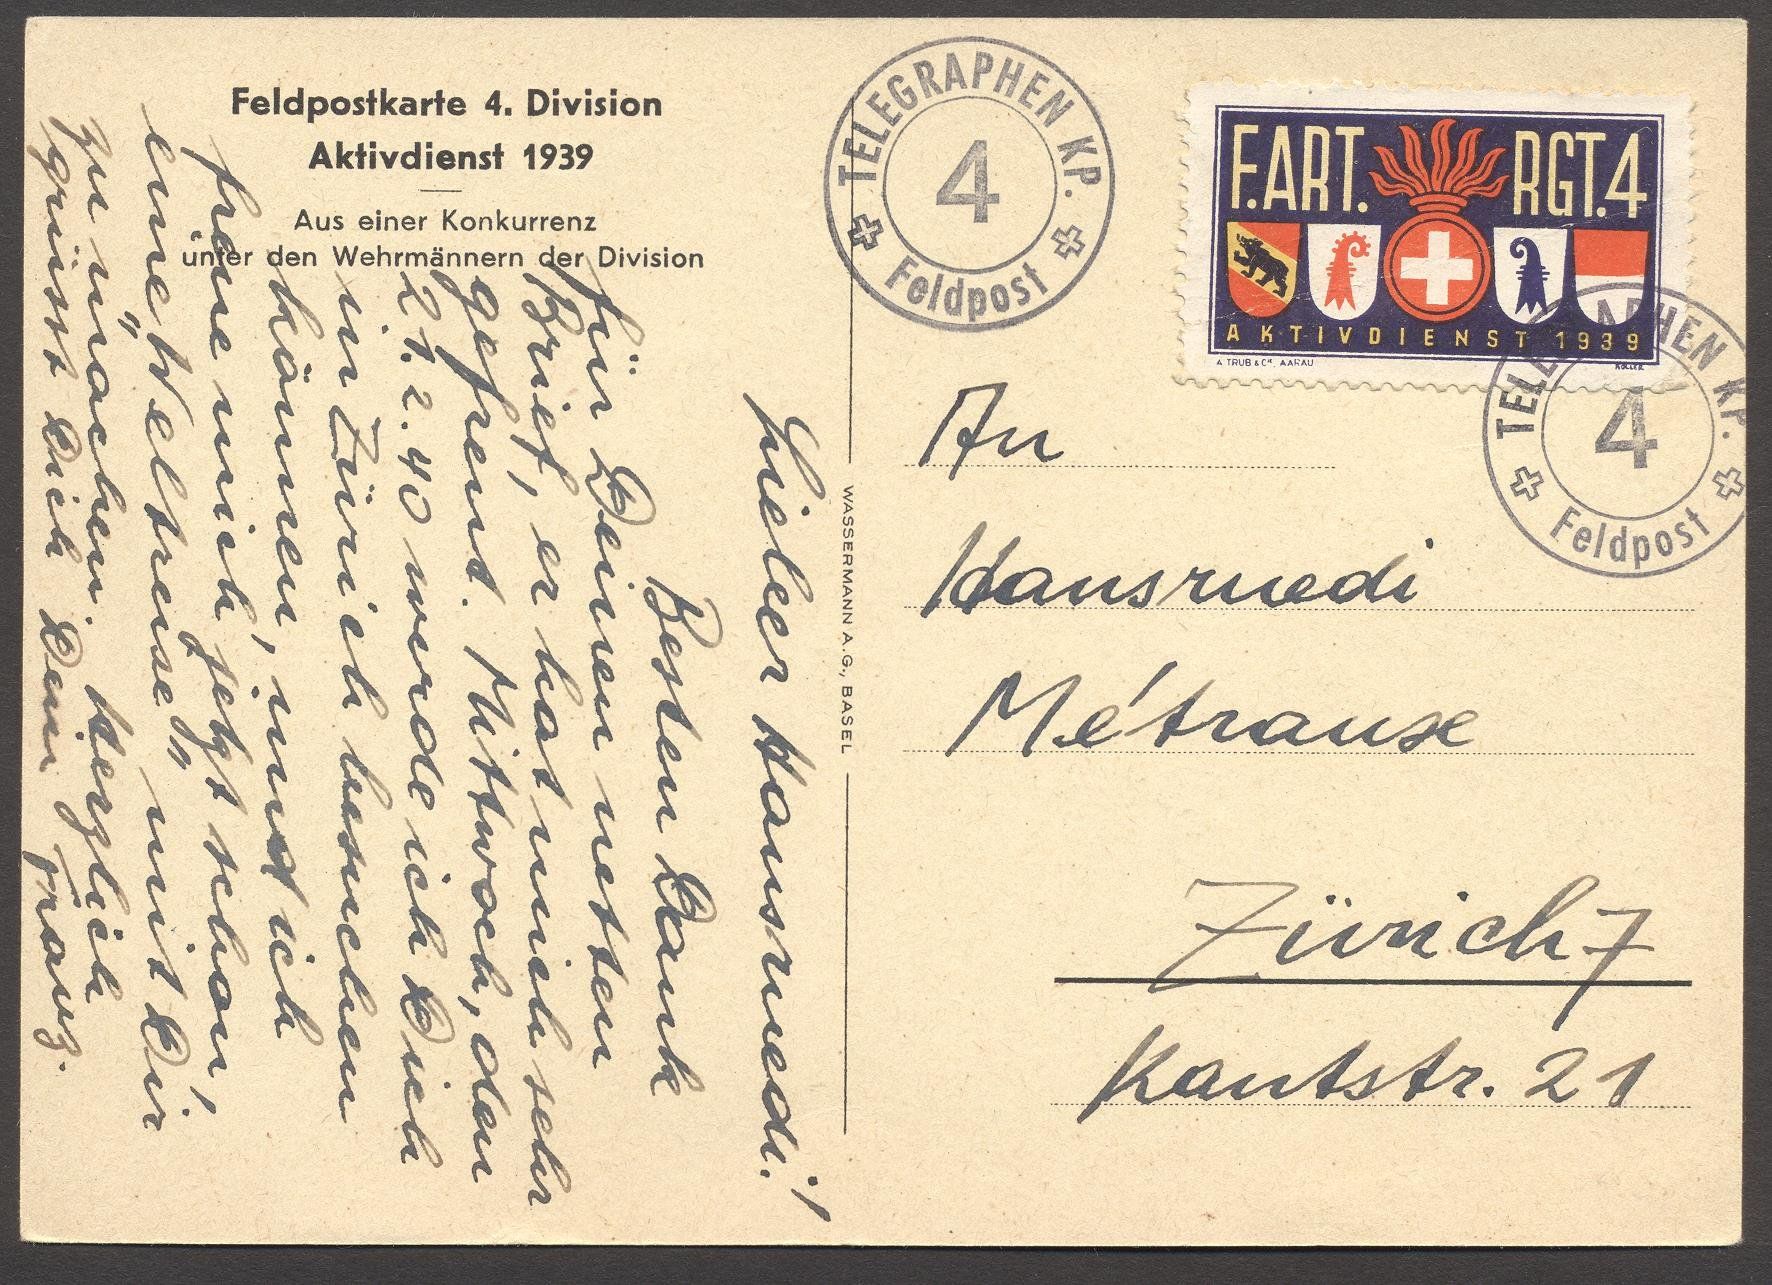 Feldpostkarte 4. Division
Aktivdienst 1939
Aus einer Konkurrenz
unter den Wehrmännern der Division
Lieber Hansruedi!
Besten Dank
für Deinen netten
Brief, er hat mich sehr
gefreut. Mittwoch, den
21.2.40 werde ich Dich
in Zürich besuchen
können, und ich
freue mich jetzt schon,
eine „Weltreise" mit Dir
zu machen. Herzlich
grüsst Dich Dein Franz.
WASSERMANN A.G., BASEL
TELEGRAPHEN KP.
4
Feldpost
F.ART. RGT.4
AKTIVDIENST 1939
A. TRÜB & Cie. AARAU
KOLLER
TELEGRAPHEN KP.
4
Feldpost
An
Hansruedi
Métraux
Zürich 7
Kantstr. 21